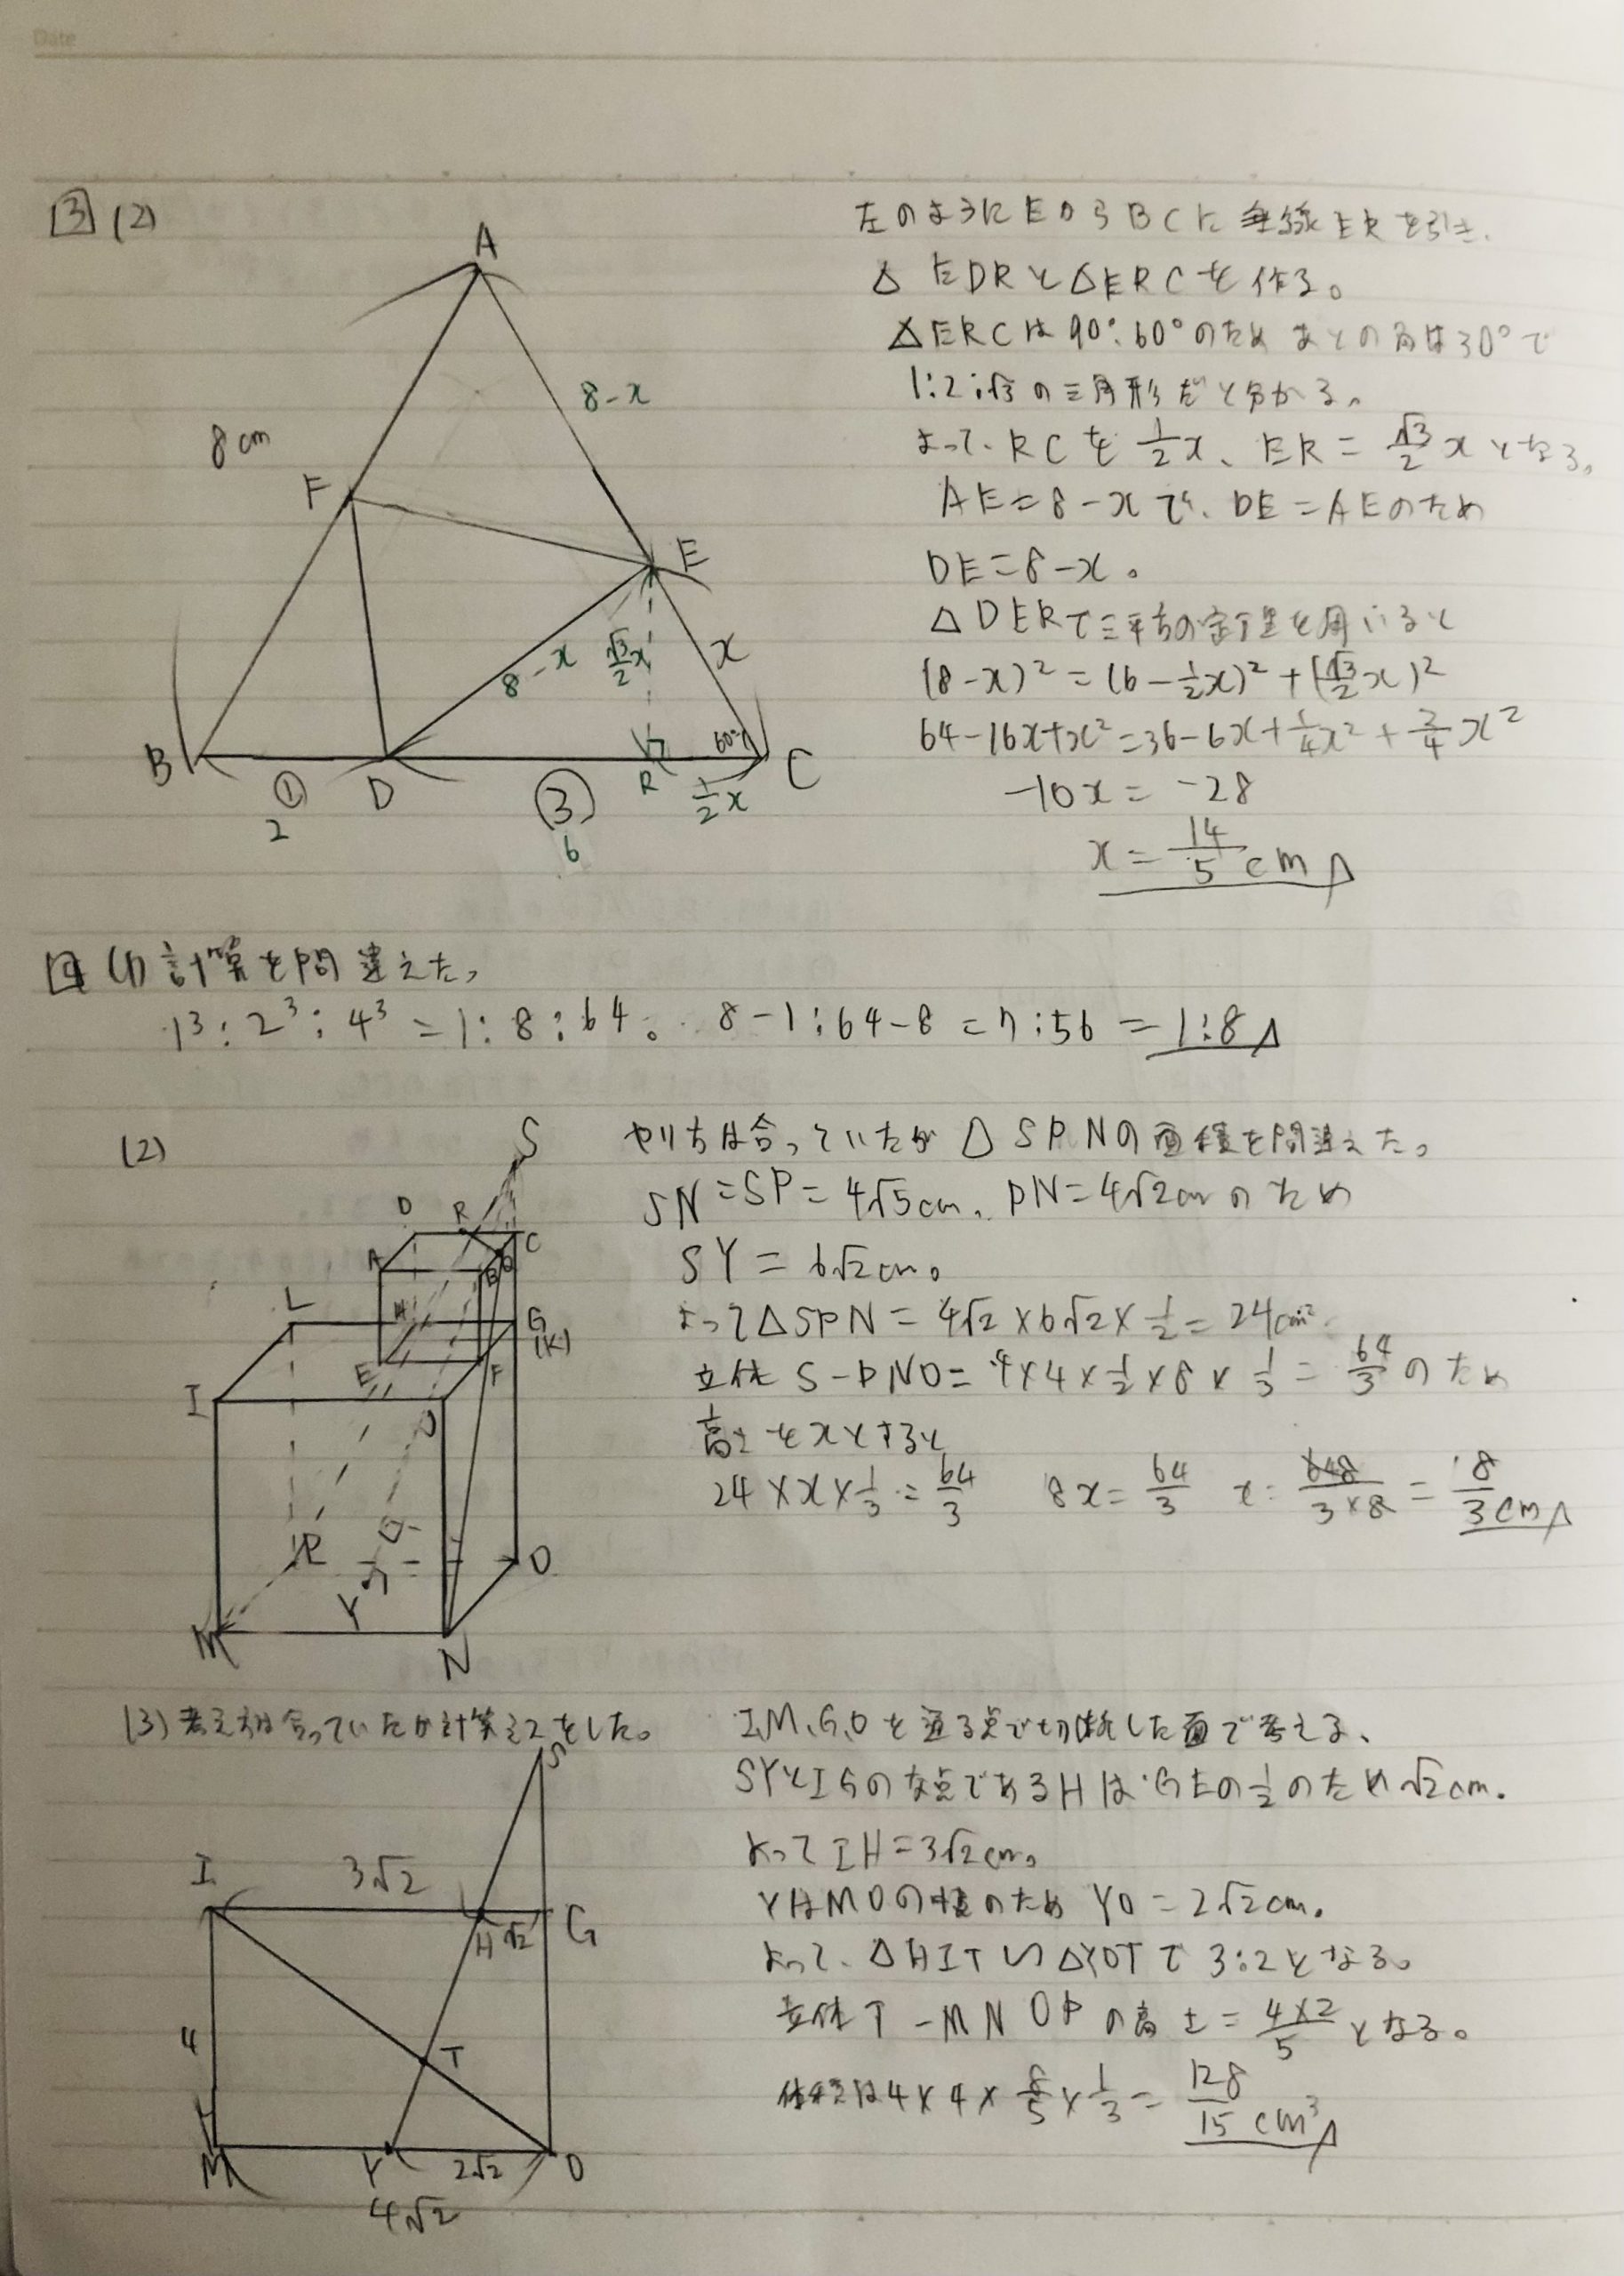 Date
3 (2)
A
8cm
8-x
F
E
8-x
√3/2 x
x
60°
B
D
R
C
① 
2
③
6
1/2 x
左のようにEからBCに垂線ERを引き、
△EDRと△ERCを作る。
△ERCは90°:60°のためあとの角は30°で
1:2:√3の三角形だと分かる。
よって、RCを1/2 x、ER=√3/2 xとなる。
AE=8-xで、DE=AEのため
DE=8-x。
△DERで三平方の定理を用いると
(8-x)²=(6-1/2x)²+(√3/2 x)²
64-16x+x²=36-6x+1/4x²+3/4x²
-10x=-28
x=14/5cm
4 (1)計算を間違えた。
1³:2³:4³=1:8:64。 8-1:64-8=7:56=1:8
(2)
S
D R C
A B
L H G
(K)
E F
I J
P O
Y
M N
やり方は合っていたが△SPNの面積を間違えた。
SN=SP=4√5cm、PN=4√2cmのため
SY=6√2cm。
よって△SPN=4√2×6√2×1/2=24cm²
立体S-PNO=4×4×1/2×8×1/3=64/3のため
高さをxとすると
24×x×1/3=64/3 8x=64/3 x=64/3×8=8/3cm
(3)考え方は合っていたが計算ミスをした。
S
I 3√2 H √2 G
4
T
M Y 2√2 O
4√2
I,M,G,Oを通る点で切断した面で考える、
SYとIGの交点であるHはGEの1/2のため√2cm.
よってIH=3√2cm。
YはMOの中点のためYO=2√2cm.
よって、△HIT∽△YOTで3:2となる。
立体T-MNOPの高さ=4×2/5となる。
体積は4×4×8/5×1/3=128/15cm³